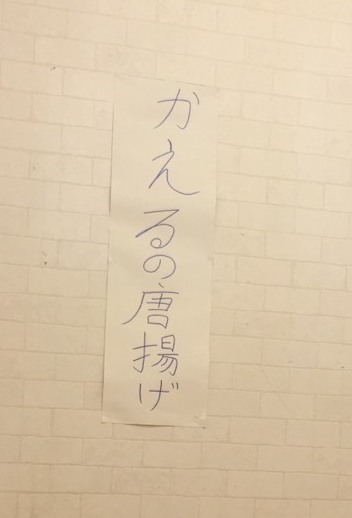 かえるの唐揚げ